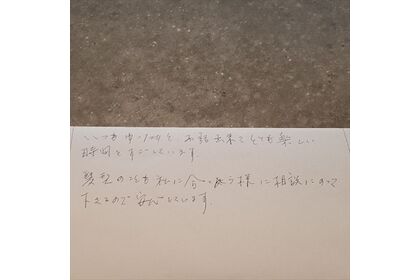 いつもゆっくりと お話出来てとても楽しい
時間をすごしています。
髪型の事も私に合う様に相談にのって
下さるので安心しています。